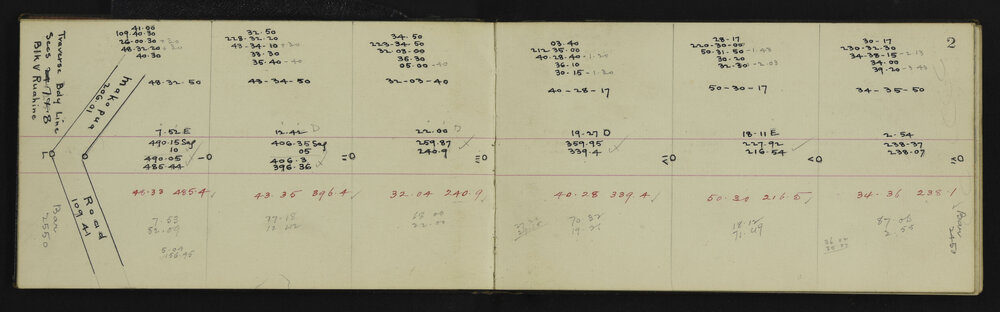 Traverse Bdy Line
Secs 7 & 8
Blk V Ruahine
Makopua
206.01
Road
109.41
Bar
2550
41.00
109.40.30
26.00.30 +20
48.32.20 +30
40.30
48-32-50
7.52 E
490.15 Sag
10
490.05
485.44
48.33 485.4 ✓
7.53
52.09
5.09
156.95
32.50
228.32.20
43-34-10 +20
33.30
35.40 -40
43-34-50
12.42 D
406.35 Sag
05
406.3
396.36 ✓
43.35 396.4 ✓
77.18
12.42
34.50
223-34-50
32-03-00
35.30
05.00 -40
32-03-40
22.00 D
259.87
240.9 ✓
32.04 240.9 ✓
68.00
22.00
03.40
212-35-00
40-28-40 -1.20
36.10
30-15 -1.20
40-28-17
19.27 D
359.95
339.4 ✓
40.28 339.4 ✓
70.82
19.26
28-17
220-30-00
50-31-50 -1.43
30.20
32.30 -2.03
50-30-17
18.11 E
227.92
216.54 ✓
50.30 216.5 ✓
18.12
71.49
2
30-17
230-32-30
34-38-15 -2.13
34.00
39.20 -3.43
34-35-50
2.54
238.37
238.07
34-36 238.1 ✓
87.06
2.55
Bar
2450